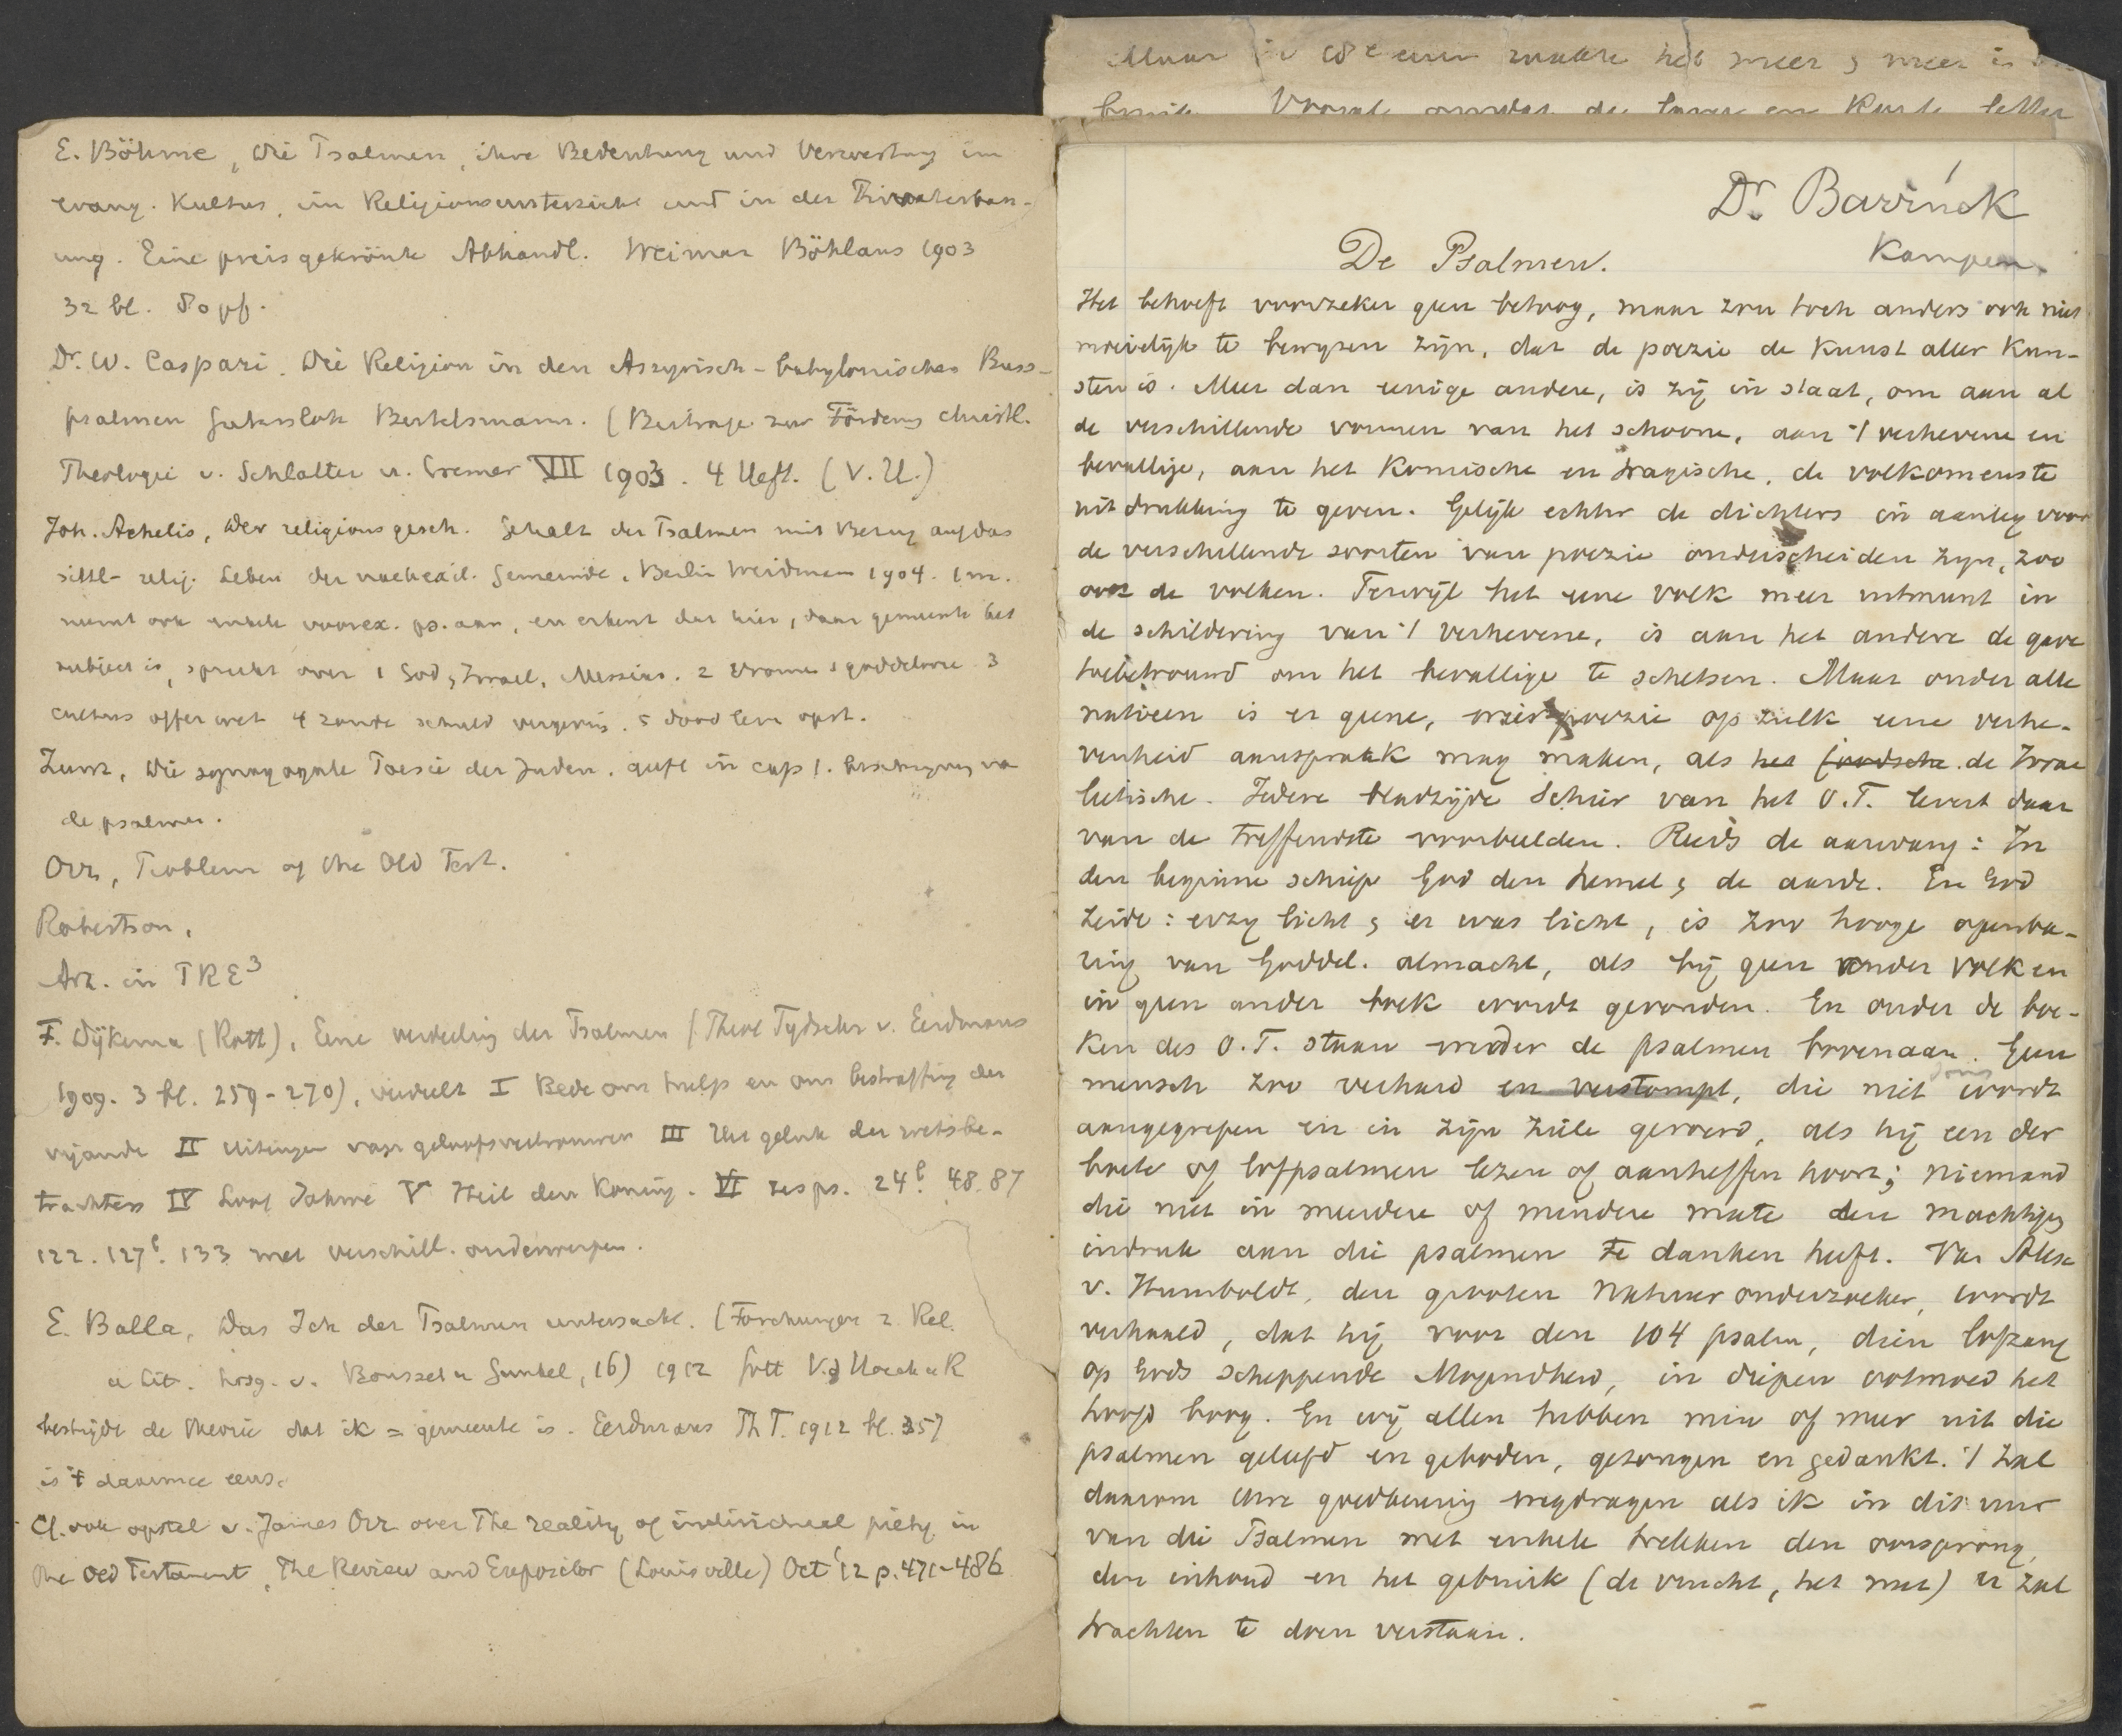 E. Böhme, Die Psalmen, ihre Bedeutung und Verwertung im
evang. Kultus, im Religionsunterricht und in der Privaterbau-
ung. Eine preisgekrönte Abhandl. Weimar Böhlaus 1903
32 bl. 80 pf.
Dr. W. Caspari. Die Religion in den Assyrisch-babylonischen Buss-
psalmen Gütersloh Bertelsmann. (Beiträge zur Förderng christl.
Theologie v. Schlatter u. Cremer VII 1903. 4 Heft. (V.U.)
Joh. Achelis, Der religionsgesch. Gehalt der Psalmen mit Bezug auf das
sittl-relig. Leben der nachexil. Gemeinde, Berlin Weidman 1904. 1 m.
neemt ook enkele voorex. ps. aan, en erkent dat hier, daar gemeente het
subject is, spreekt over 1 God, Israel, Messias. 2 vrome goddelooze 3
cultus offer wet 4 zonde schuld vergeving. 5 dood leven opst.
Zunz, Die synagogale Poesie der Juden. geeft in cap 1. beschrijving va
de psalmen.
Orr, Problem of the Old Test.
Robertson,
Art. in PRE3
F. Dijkema (Rott), Eene verdeeling der Psalmen (Theol Tydschr v. Eerdmans
1909. 3 bl. 259-270), verdeelt I Bede om hulp en om bestraffing der
vijande II Uitingen van geloofsvertrouwen III Het geluk der wetsbe-
trachters IV Loof Jahwe V Heil den Koning. VI zes ps. 24b. 48. 87
122. 127b. 133 met verschill. onderwerpen.
E. Balla, Das Ich der Psalmen untersucht. (Forschungen z. Rel.
u Lit. hrsg. v. Bousset u Gunkel, 16) 1912 Gött V.d Hoeck u R
bestrijdt de theorie dat ik = gemeente is. Eerdmans Th T. 1912 bl. 357
is 't daarmee eens.
Cf. ook opstel v. James Orr over The reality of individual piety in
the Old Testament, The Review and Expositor (Louisville) Oct '12 p. 471-486
Maar het meer & meer is
Vooral omdat de letter
Dr. Bavinck
Kampen.
De Psalmen.
Het behoeft voorzeker geen betoog, maar zou toch anders ook niet
moeielijk te bewyzen zijn, dat de poezie de kunst aller kun-
sten is. Meer dan eenige andere, is zij in staat, om aan al
de verschillende vormen van het schoone, aan 't verhevene en
bevallige, aan het komische en tragische, de volkomenste
uitdrukking te geven. Gelijk echter de dichters in aanleg voor
de verschillende soorten van poezie onderscheiden zyn, zoo
ook de volken. Terwijl het eene volk meer uitmunt in
de schildering van 't verhevene, is aan het andere de gave
toebetrouwd om het bevallige te schetsen. Maar onder alle
natieen is er geene, wier poezie op zulk eene verhe-
venheid aanspraak mag maken, als het joodsche de Israe
lietische. Iedere bladzijde schier van het O.T. levert daar
van de treffendste voorbeelden. Reeds de aanvang: In
den beginne schiep God den hemel & de aarde. En God
zeide: er zy licht & er was licht, is zoo hooge openba-
ring van Goddel. almacht, als bij geen ander volk en
in geen ander boek wordt gevonden. En onder de boe-
ken des O.T. staan weder de psalmen bovenaan. Geen
mensch zoo verhard en verstompt, die niet soms wordt
aangegrepen en in zijn ziele geroerd, als hij een der
boete of lofpsalmen lezen of aanheffen hoort; niemand
die niet in meerdere of mindere mate den machtigen
indruk aan die psalmen te danken heeft. Van Alex
v. Humboldt, den grooten Natuur onderzoeker, wordt
verhaald, dat hij voor den 104 psalm, dien lofzang
op Gods scheppende Mogendheid, in diepen ootmoed het
hoofd boog. En wij allen hebben min of meer uit die
psalmen geleefd en gebeden, gezongen en gedankt. 't Zal
daarom Uwe goedkeuring wegdragen als ik in dit uur
van die Psalmen met enkele trekken den oorsprong,
den inhoud en het gebruik (de vrucht, het nut) u zal
trachten te doen verstaan.